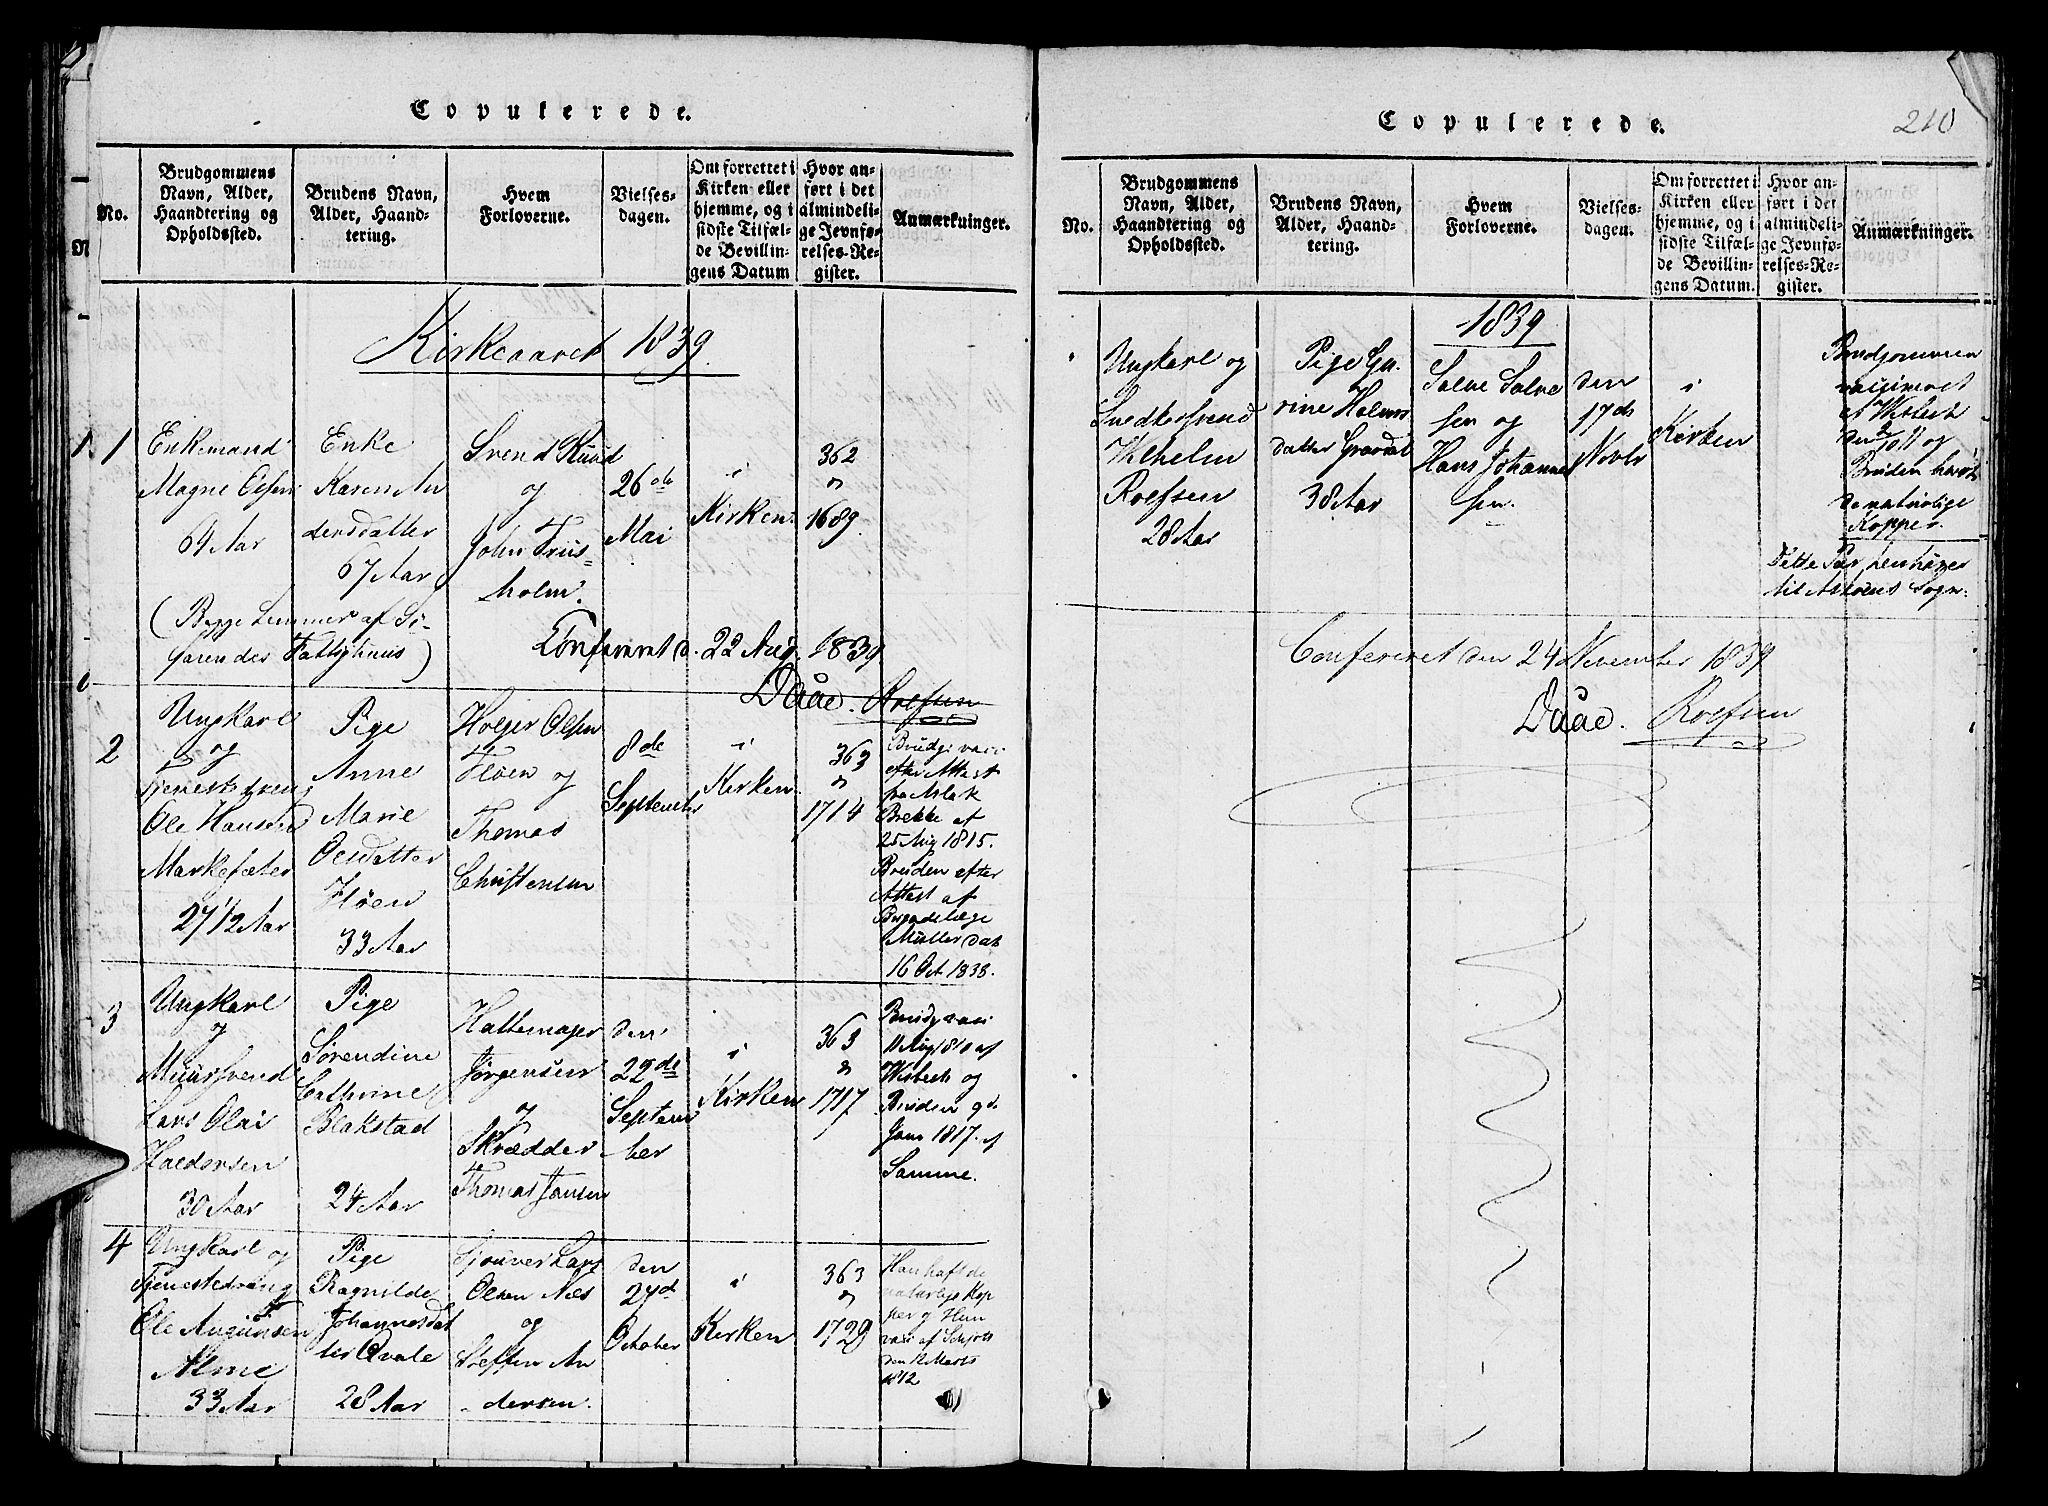 Copulerede.
No.
Brudgommens
Navn, Alder,
Haandtering og
Opholdssted.
Brudens Navn,
Alder, Haand-
tering.
Hvem
Forloverne.
Vielses-
dagen.
Om forrettet i
Kirken eller
hjemme, og i
sidste Tilfæl-
de Bevillin-
gens Datum
Hvor an-
ført i det
almindeli-
ge Jevnfø-
relses-Re-
gister.
Anmærkninger.
Kirkeaaret 1839.
1
Enkemand
Magne Elsen
69 Aar
Enke
Karen An
dersdatter
67 Aar
Svend Ruud
og
John Frus-
holm.
26de
Mai
i
Kirken
362
1689.
(Begge Lemmer af
Farendes Fattighuus)
Confereret d. 22 Aug. 1839
Daae. Rolfsen
2
Ungkarl
og
Tjenestdreng
Ole Hansen
Markesæter
27 1/2 Aar
Pige
Anne
Marie
Olsdatter
Fløen
33 Aar
Holger Olsen
Fløen og
Thomas
Christensen
8de
September
i
Kirken
363
1714
Brudg. vacc.
efter Attest
fra Aslak
Brekke af
25 Aug 1815.
Bruden efter
Attest af
Brigadelæge
Müller dat
16 Oct 1838.
3
Ungkarl
og
Muursvend
Lars Olai
Haldorsen
30 Aar
Pige
Sørendine
Cathrine
Blakstad
24 Aar
Hattemager
Jørgensen
og
Skrædder
Thomas Jansen
den
22de
Septem
ber
i
Kirken
363
1717
Brudg vacc
11 Aug 1810 af
Wisbech og
Bruden 9de
Janr 1817. af
Samme.
4
Ungkarl og
Tjenestedreng
Ole Augunsen
Alme
33 Aar
Pige
Ragnilde
Johannesdat
ter Qvale
28 Aar
Sjouver Lars
Olsen Næs
og
Steffen An
dersen.
den
27d
October
i
Kirken
363
1729
Han haft de
naturlige Kop
per og Hun
vacc af Schjøtt
den 12 Marts
1812
Copulerede.
210
No.
Brudgommens
Navn, Alder,
Haandtering og
Opholdssted.
Brudens Navn,
Alder, Haand-
tering.
Hvem
Forloverne.
Vielses-
dagen.
Om forrettet i
Kirken eller
hjemme, og i
sidste Tilfæl-
de Bevillin-
gens Datum.
Hvor an-
ført i det
almindeli-
ge Jevnfø-
relses-Re-
gister.
Anmærkninger.
1839
Ungkarl og
Snedkersvend
Wilhelm
Rolfsen
28 Aar
Pige Gu.
rine Holms
datter Gravdal
38 Aar
Salve Salve
sen og
Hans Johannes
sen.
den
17de
Novbr
i
Kirken
Brudgommen
vaccineret
af Wisbech
den
Bruden havt
de naturlige
Kopper.
Dette Par henhører
til Askøens Sogn.
Confereret den 24 November 1839
Daae. Rolfsen